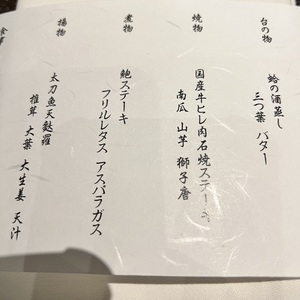 台の物
蛤の酒蒸し
三つ葉 バター
焼物
国産牛ヒレ肉石焼ステーキ
南瓜 山芋 獅子唐
煮物
鮑ステーキ
フリルレタス アスパラガス
揚物
太刀魚天麩羅
椎茸 大葉 大生姜 天汁
食事